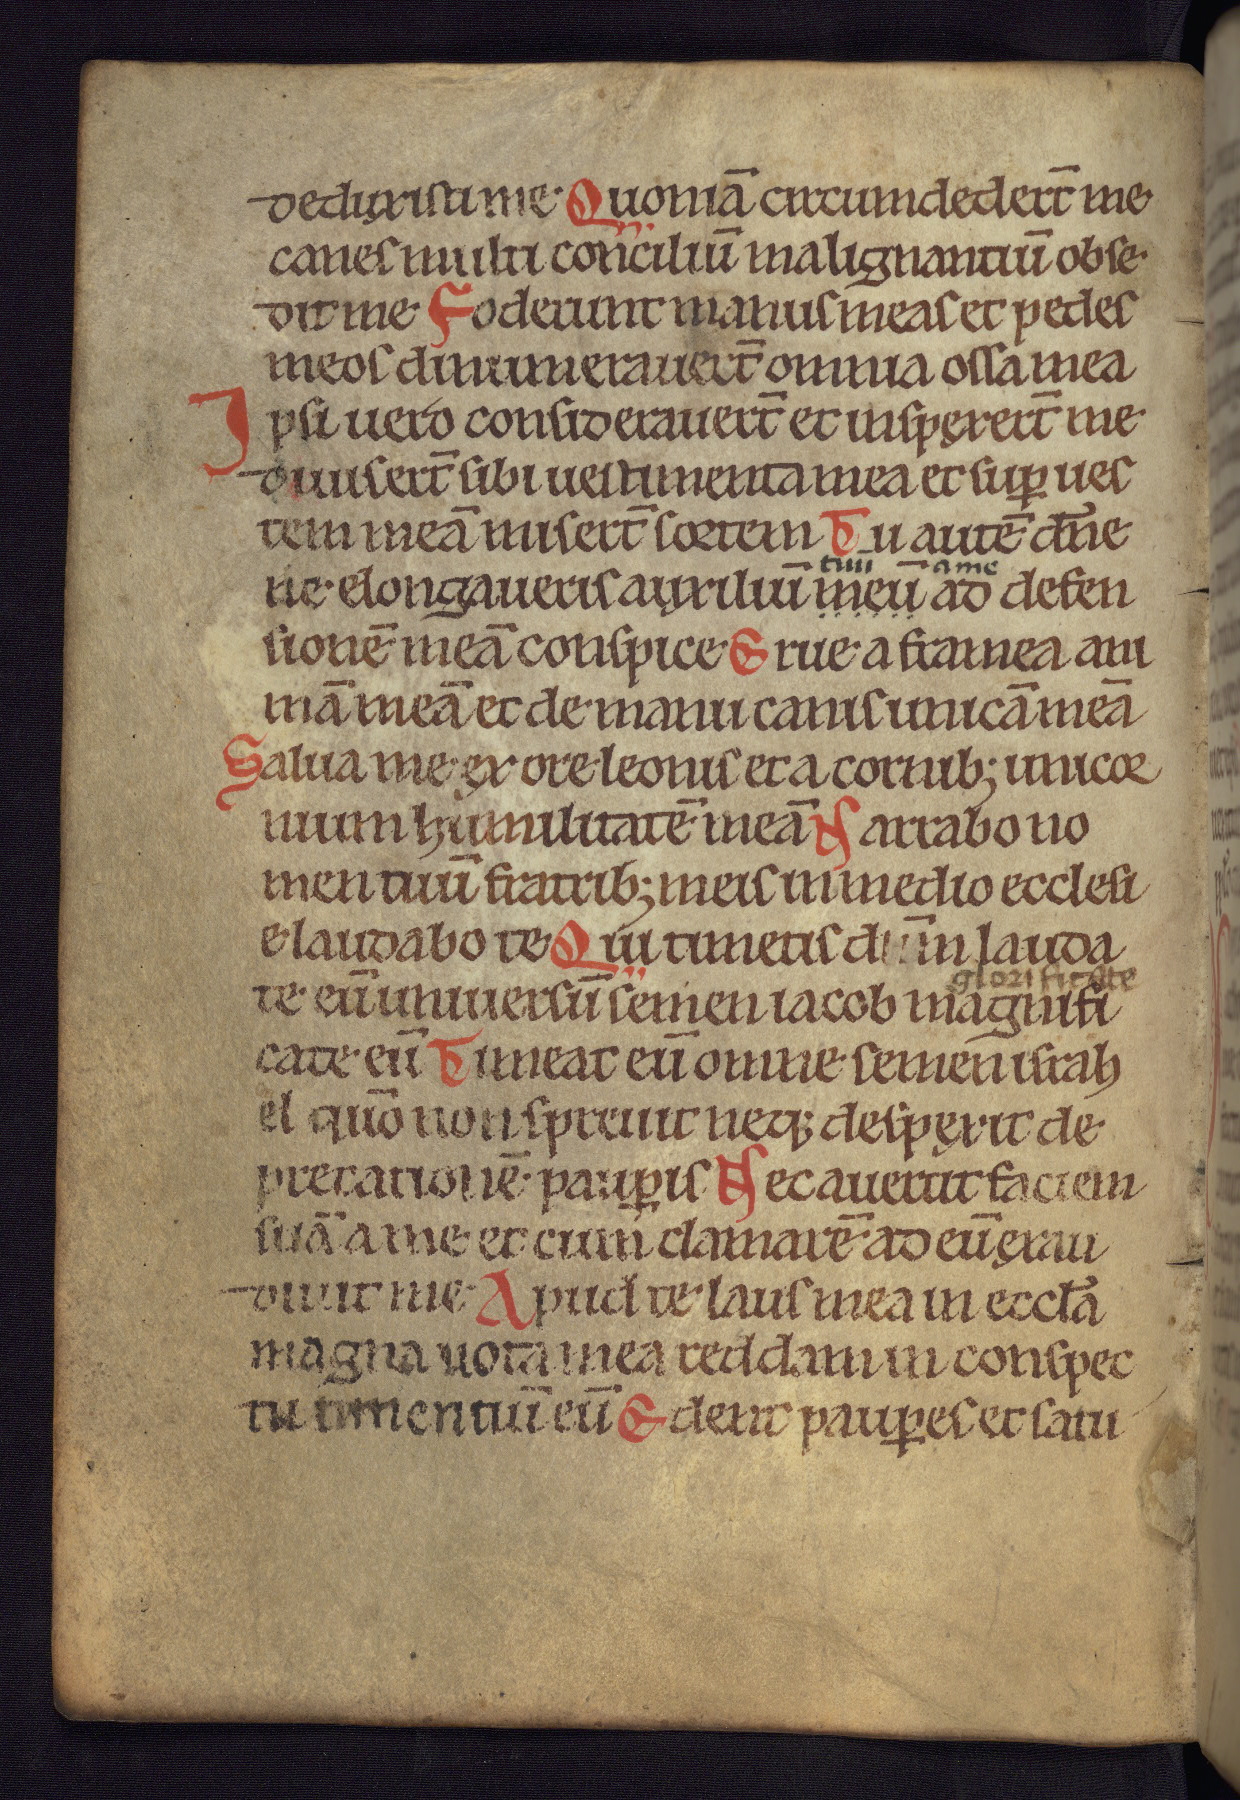 deduxisti me Quoniā circumdedert̄ me
canes multi conciliū malignantiū obse
dit me Foderunt manus meas et pedes
meos dinumerauert̄ omnia ossa mea
Ipsi uero considerauert̄ et inspexert̄ me
diuisert̄ sibi uestimenta mea et suꝑ ues
tem meā misert̄ sortem Tu autē dn̄e
tuū a me
ne elongaueris auxiliū meū ad defen
sionē meā conspice Erue a framea ani
mā meā et de manu canis unicā meā
Salua me ex ore leonis et a cornib; unicor
nium humilitatē meā Narrabo no
men tuū fratrib; meis in medio ecclesi
e laudabo te Qui timetis dn̄m lauda
glorificate
te eū uniuersū semen iacob magnifi
cate eū Timeat eū omne semen israh
el quō non spreuit neq; despexit de
precationē pauꝑis Nec auertit faciem
suā a me et cum clamarē ad eū exau
diuit me Apud te laus mea in eccla̅
magna uota mea reddam in conspec
tu timentiū eū Edent pauꝑes et satu